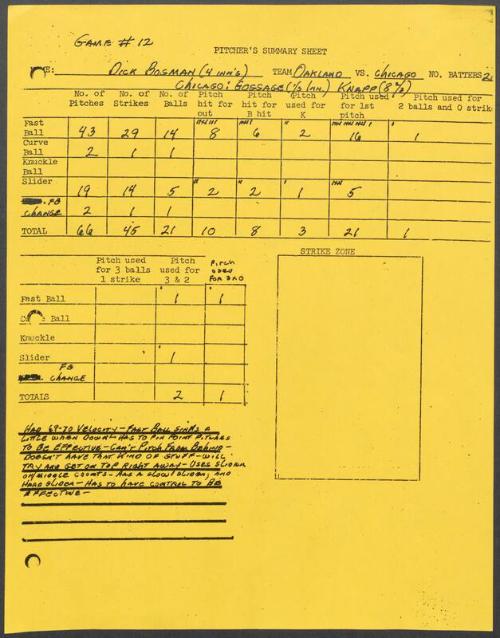 GAME # 12
PITCHER'S SUMMARY SHEET
DICK BOSMAN (4 INN'S) TEAM OAKLAND VS. CHICAGO NO. BATTERS 21
CHICAGO: GOSSAGE (1/3 INN.) KNAPP (8 2/3)
No. of Pitches No. of Strikes No. of Balls Pitch hit for out Pitch hit for B hit Pitch used for K Pitch used for 1st pitch Pitch used for 2 balls and 0 strike
Fast Ball 43 29 14 8 6 2 16 1
Curve Ball 2 1 1
Knuckle Ball
Slider 19 14 5 2 2 1 5
FB CHANGE 2 1 1
TOTAL 66 45 21 10 8 3 21 1
Pitch used for 3 balls 1 strike Pitch used for 3 & 2 PITCH USED FOR 3 AND 0
STRIKE ZONE
Fast Ball 1 1
Ball
Knuckle
Slider 1
FB CHANGE
TOTALS 2 1
HAD 69-70 VELOCITY - FAST BALL SINKS A
LITTLE WHEN DOWN - HAS TO PIN POINT PITCHES
TO BE EFFECTIVE - CAN'T PITCH FROM BEHIND -
DOESN'T HAVE THAT KIND OF STUFF - WILL
TRY AND GET ON TOP RIGHT AWAY - USES SLIDER
ON MIDDLE COUNTS - HAS A SLOW SLIDER, AND
HARD SLIDER - HAS TO HAVE CONTROL TO BE
EFFECTIVE -